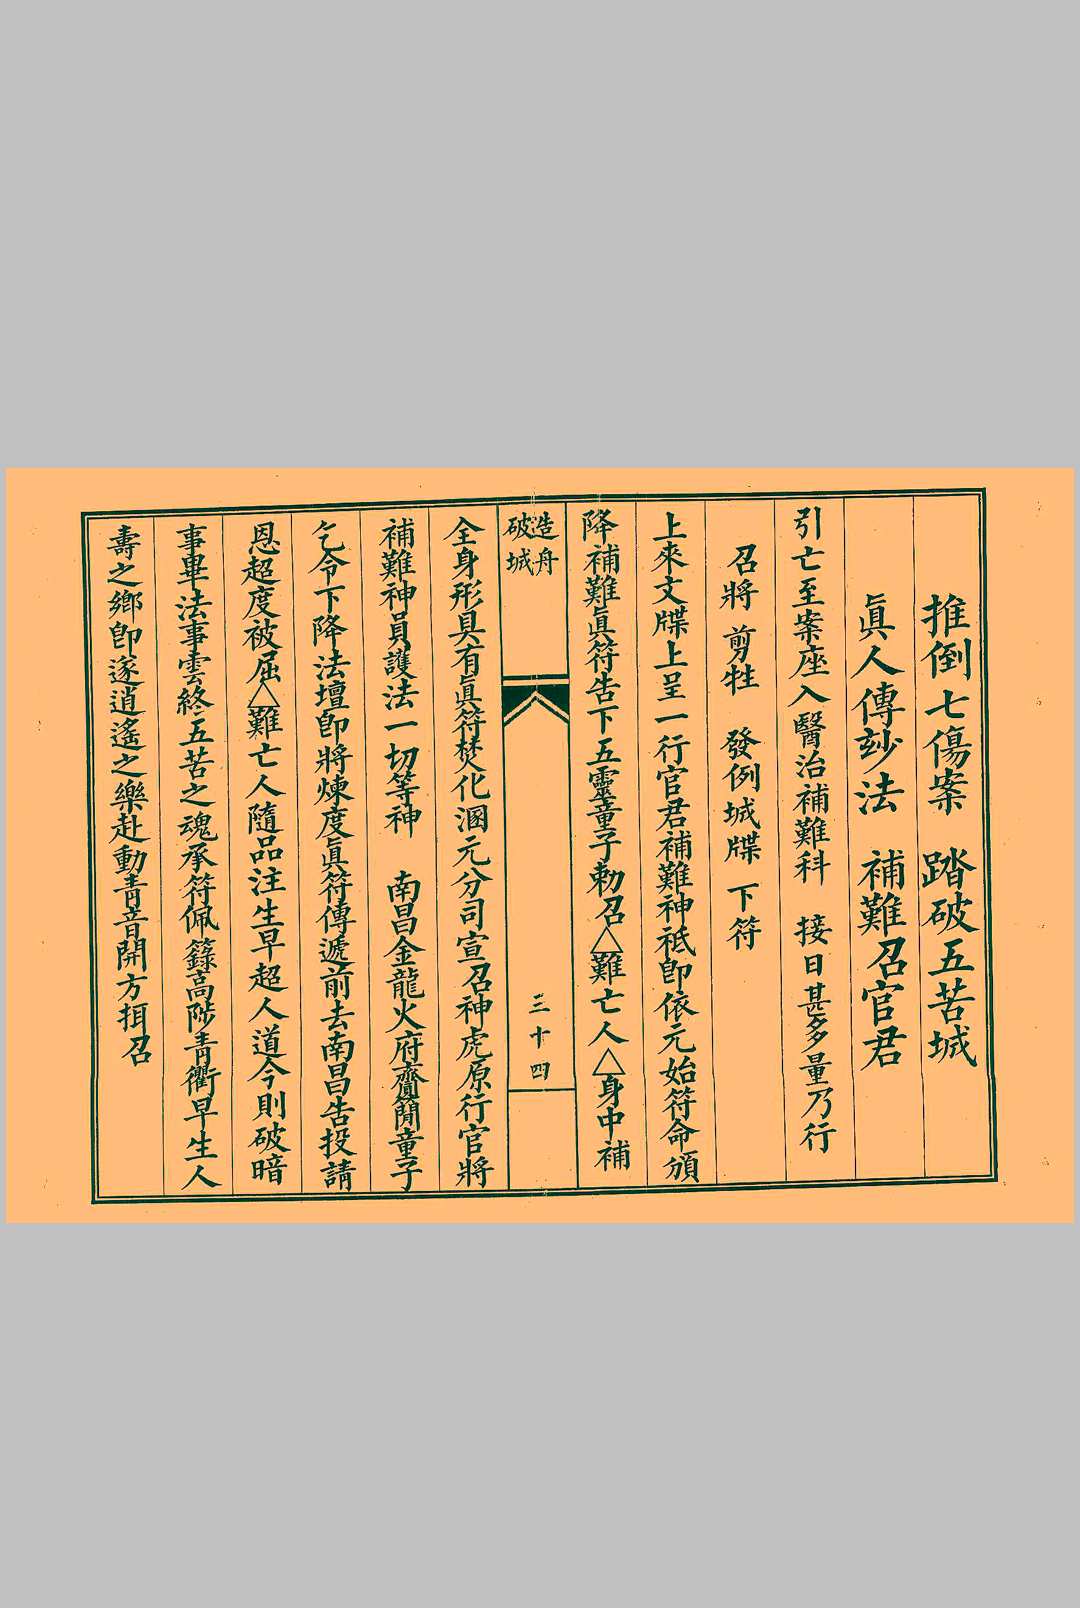 推倒七傷案　踏破五苦城
眞人傳玅法　補難召官君
引亡至案座入醫治補難科　接日甚多量乃行
召將　剪牲　發例城牒　下符
上來文牒上呈一行官君補難神祇卽依元始符命頒
降補難眞符告下五靈童子勅召△難亡人△身中補
造舟
破城
三十四
全身形具有眞符焚化溷元分司宣召神虎原行官將
補難神員護法一切等神　南昌金龍火府齎簡童子
乞令下降法壇卽將煉度眞符傳遞前去南昌告投請
恩超度被屈△難亡人隨品注生早超人道今則破暗
事畢法事雲終五苦之魂承符佩籙高陟青衢早生人
壽之鄉卽遂逍遙之樂赴動青音開方揖召